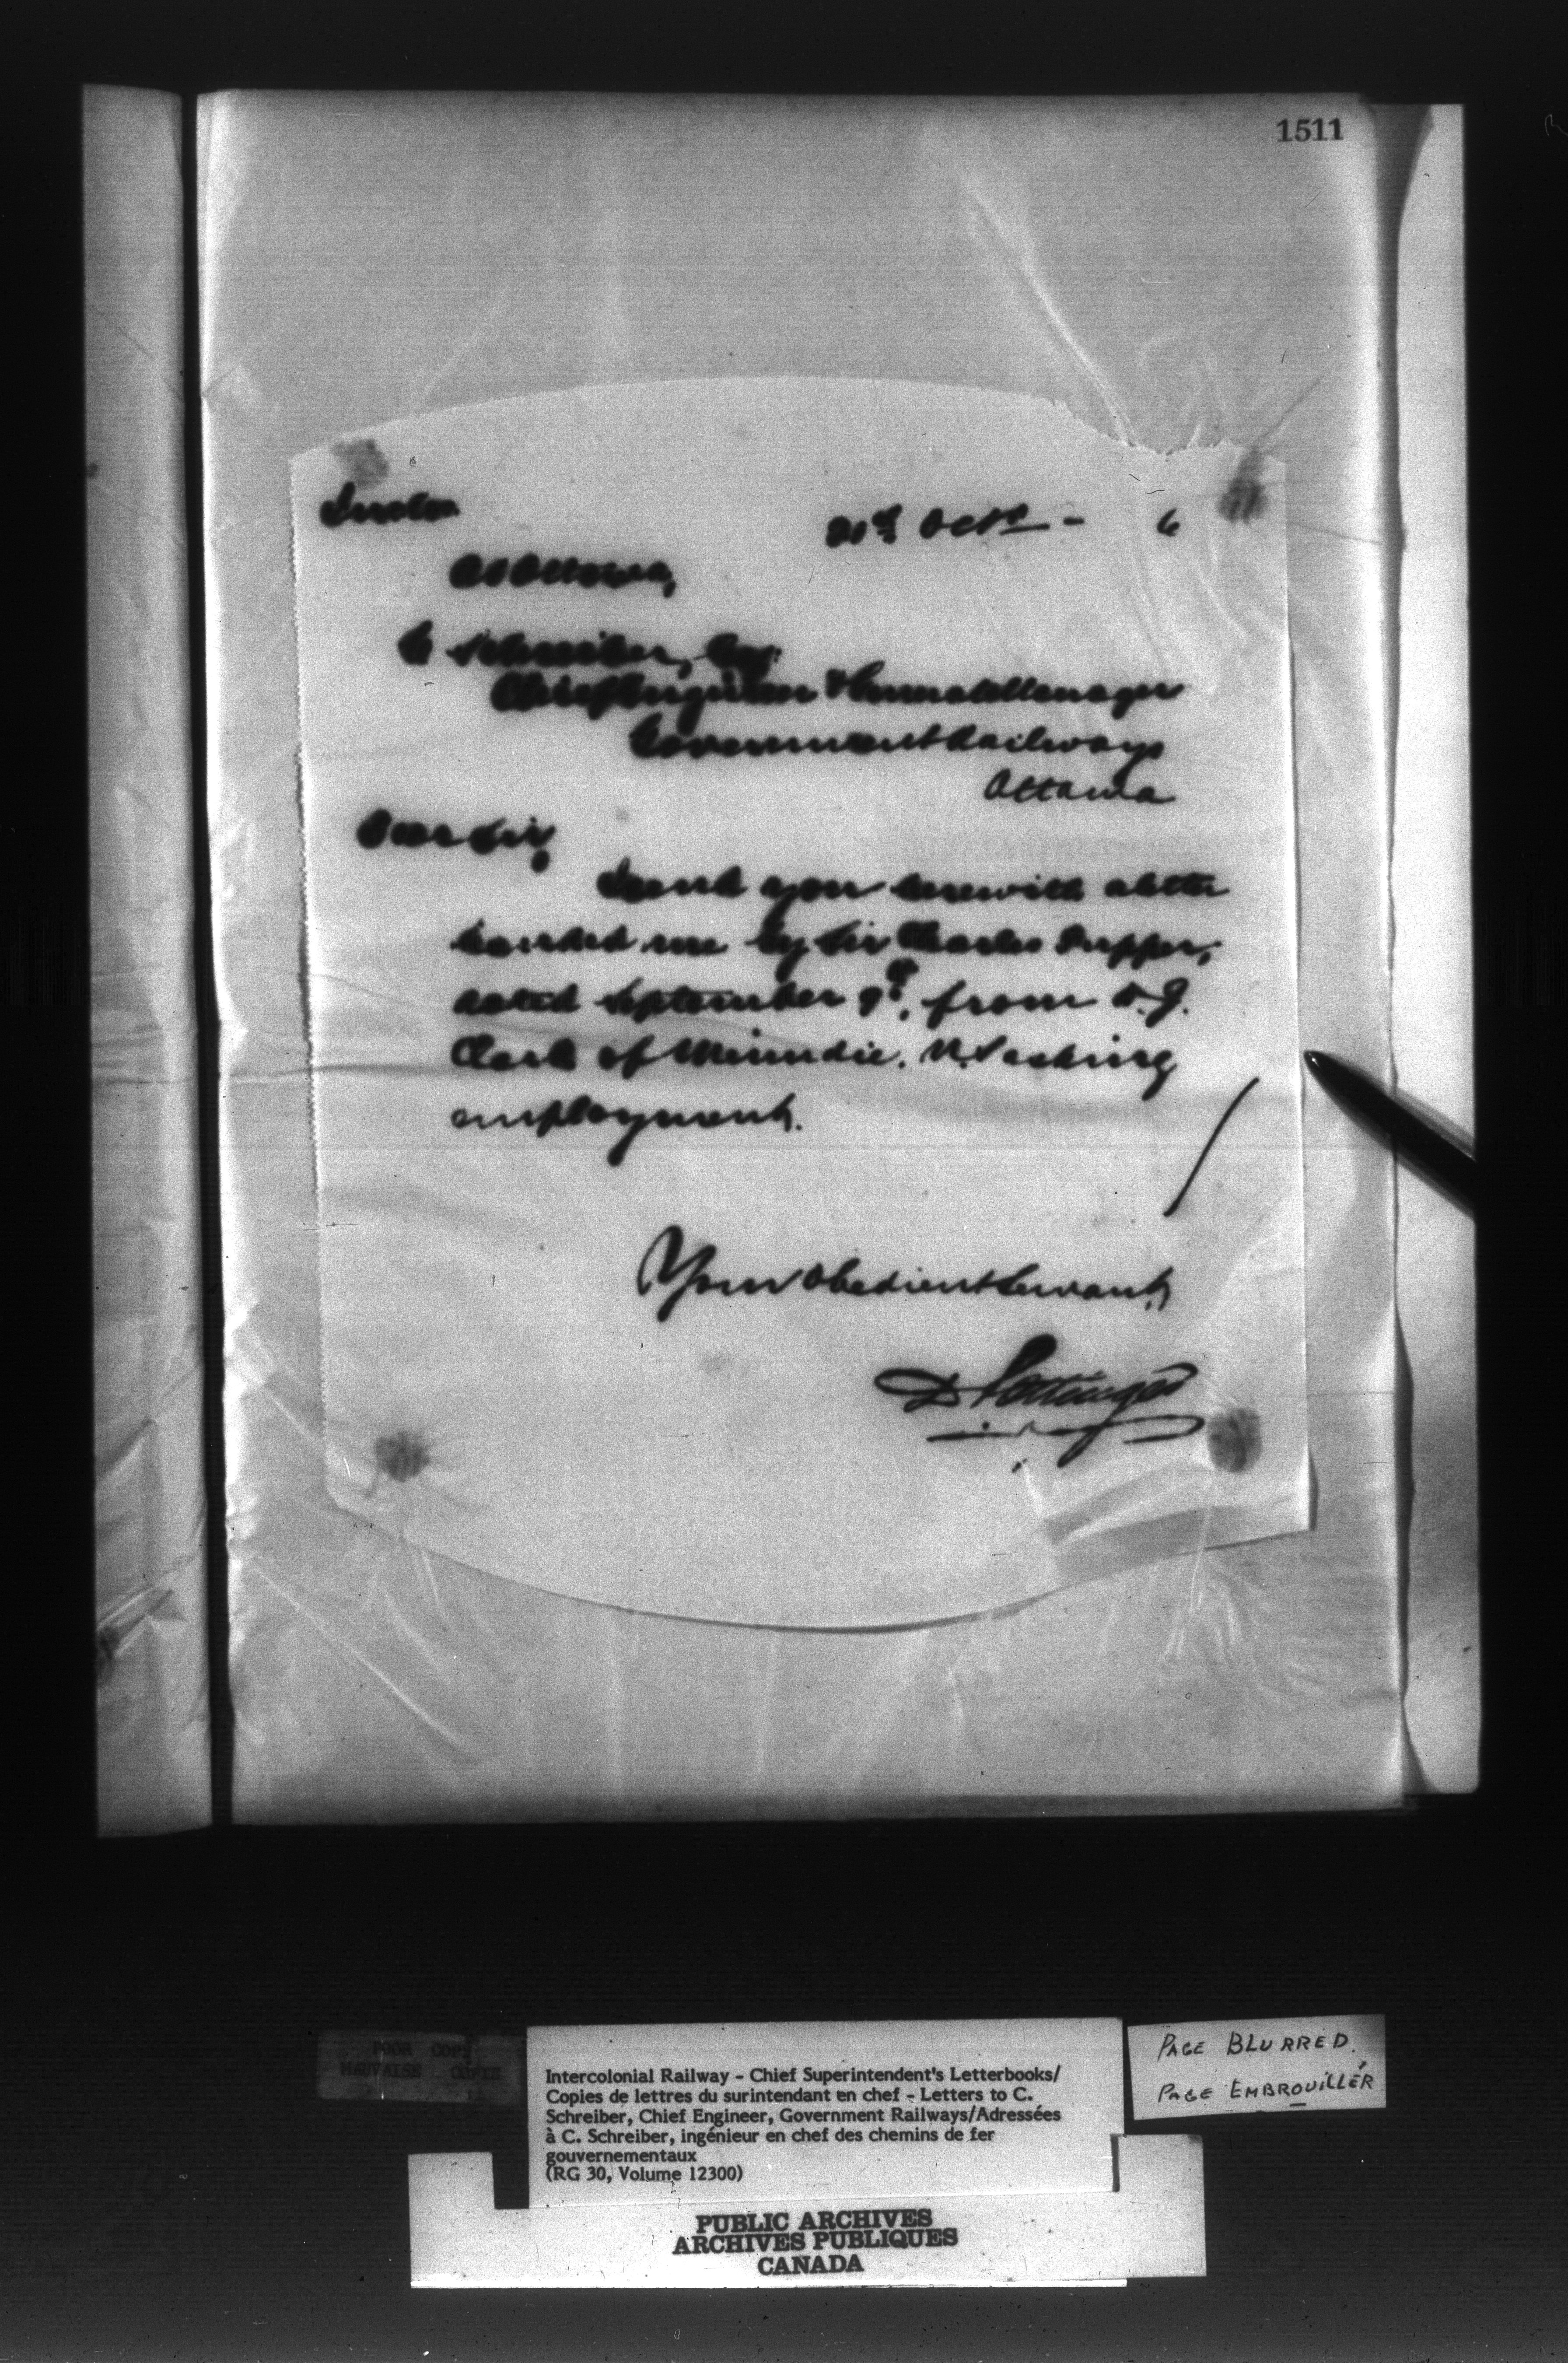 1511
21st Octr - 6
At Ottawa,
C Schreiber, Esq:
Chief Engineer & General Manager
Government Railways
Ottawa
Dear Sir,
I send you herewith a letter
handed me by Sir Charles Tupper,
dated September 9th, from
Clark of N.S. asking
employment.
Your Obedient Servant,
D Pottinger
POOR COPY
MAUVAISE COPIE
Intercolonial Railway - Chief Superintendent's Letterbooks/
Copies de lettres du surintendant en chef - Letters to C.
Schreiber, Chief Engineer, Government Railways/Adressées
à C. Schreiber, ingénieur en chef des chemins de fer
gouvernementaux
(RG 30, Volume 12300)
PAGE BLURRED.
PAGE EMBROUILLÉR
PUBLIC ARCHIVES
ARCHIVES PUBLIQUES
CANADA